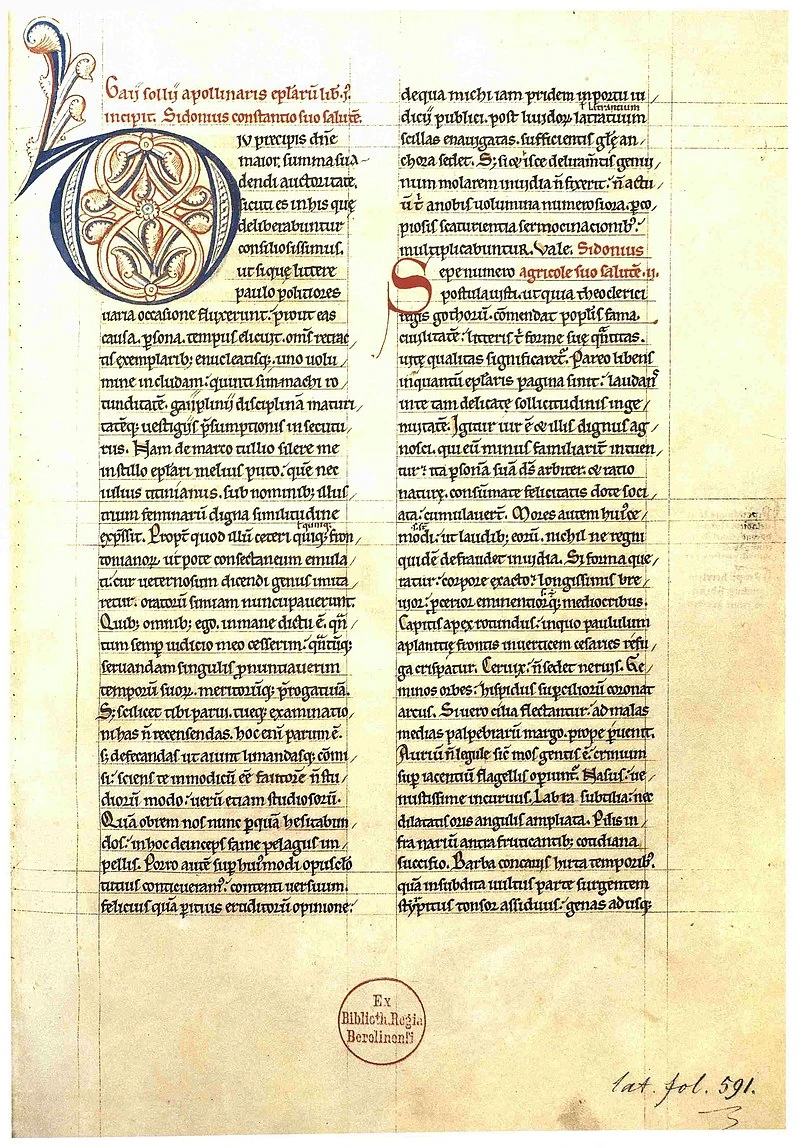 Gaii sollii apollinaris eplarū lib. j.
incipit. Sidonius constantio suo salutē.
DIV precipis dn̄e
maior, summa sua-
dendi auctoritate,
sicuti es in his que
deliberabuntur
consiliosissimus,
ut si que littere
paulo politiores
uaria occasione fluxerunt. prout eas
causa. psona. tempus elicuit. om̄s retrac
tis exemplarib; enucleatisq; uno uolu
mine includam. quinti simmachi ro
tunditatē. gaii plinii disciplinā maturi
tatēq; uestigiis p̄sumptionis insecutu
rus. Nam de marco tullio silere me
in stilo eplari melius puto. que nec
iulius titinianus. sub nominib; illus
trium feminarū digna similitudine
exp̄ssit. Propt̄ quod illū ceteri quiq; fron
tonianor. utpote consectaneum emula
ti. cur ueternosum dicendi genus imita
retur. oratorū simiam nuncupauerunt.
Quib; omnib; ego. inmane dictu ē. qn̄
tum semp iudicio meo cesserim. qn̄tūq;
seruandam singulis pnuntiauerim
temporū suor. meritorūq; p̄rogatiuā.
S; scilicet tibi parui. tueq; examinatio
ni has n̄ recensendas. hoc eni parum ē.
s; defecandas ut aiunt limandasq; cōmi
si. sciens te immodicū eē fautorē n̄ stu
diorū modo. uerū etiam studiosorū.
Quā obrem nos nunc pquā hesitabun
dos. in hoc deinceps fame pelagus im
pellis. Porro autē sup hui'modi opusclo
titius conticueram'. contenti uersuum.
felicius quā peritius ertiditorū opinione.
de qua michi iam pridem in portu iu
dicii publici. post liuidor. latratuum
t latrantium
scillas enauigatas. sufficientis gl̄e an
chora sedet. S; si & isce deliram̄tis genu
inum molarem inuidia n̄ fixerit. n̄ actu
tū t̄ a nobis uolumina numerosiora. pco
piosis scaturientia sermocinacionib'.
multiplicabuntur. Vale. Sidonius
Sepenumero agricole suo salutē. ij.
postulauisti. ut quia theoderici
regis gothorū. cōmendat poplis fama.
ciuilitatē. litteris t̄ forme sue qn̄titas.
uite qualitas significaret'. Pareo libens
inquantū eplaris pagina sinit. laudans
in te tam delicate sollicitudinis inge
nuitatē. Igitur uir ē & illis dignus ag
nosci. qui eū minus familiarit̄ intuen
tur. ita psonā suā ds̄ arbiter. & ratio
nature. consūmate felicitatis dote soci
ata. cumulauert̄. Mores autem hui'ce
modi. ut laudib; eorū. nichil ne regni
quidē defraudet inuidia. Si forma que
ratur. corpore exacto. longissimis bre
uior. pcerior eminentiorq; mediocribus.
Capitis apex rotundus. in quo paululum
a planitie frontis in uerticem cesaries refu
ga crispatur. Ceruix. n̄ sedet neruis. Ge
minos orbes. hispidus supciliorū coronat
arcus. Si uero cilia flectantur. ad malas
medias palpebrarū margo. prope puenit.
Auriū n̄ legule sic̄ mos gentis ē. crinium
sup iacentiū flagellis opiunt'. Nasus. ue
nustissime incuruus. Labra. subtilia. nec
dilatatis oris angulis ampliata. Pilis in
fra nariū antra fruticantib; cotidiana
succisio. Barba concauis hirta temporib'.
quā in subdita uultus parte surgentem
stirpitus tonsor assiduus. genas adusq;
Ex
Biblioth. Regia
Berolinensi
lat. fol. 591.